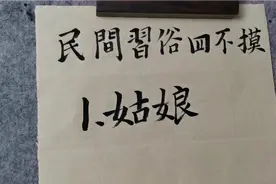 民間習俗四不摸
1、姑娘